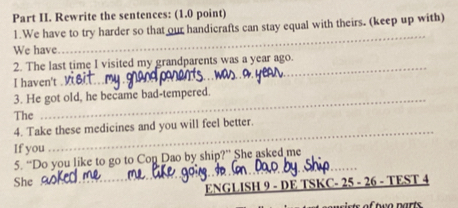 Part II. Rewrite the sentences: (1.0 point)
1.We have to try harder so that our handicrafts can stay equal with theirs. (keep up with)
We have
2. The last time I visited my grandparents was a year ago.
I haven't visit my grandparents was a year.
3. He got old, he became bad-tempered.
The
4. Take these medicines and you will feel better.
If you
5. "Do you like to go to Con Dao by ship?" She asked me
She asked me me like going to Con Dao by ship
ENGLISH 9 - DE TSKC- 25 - 26 - TEST 4
of two parts